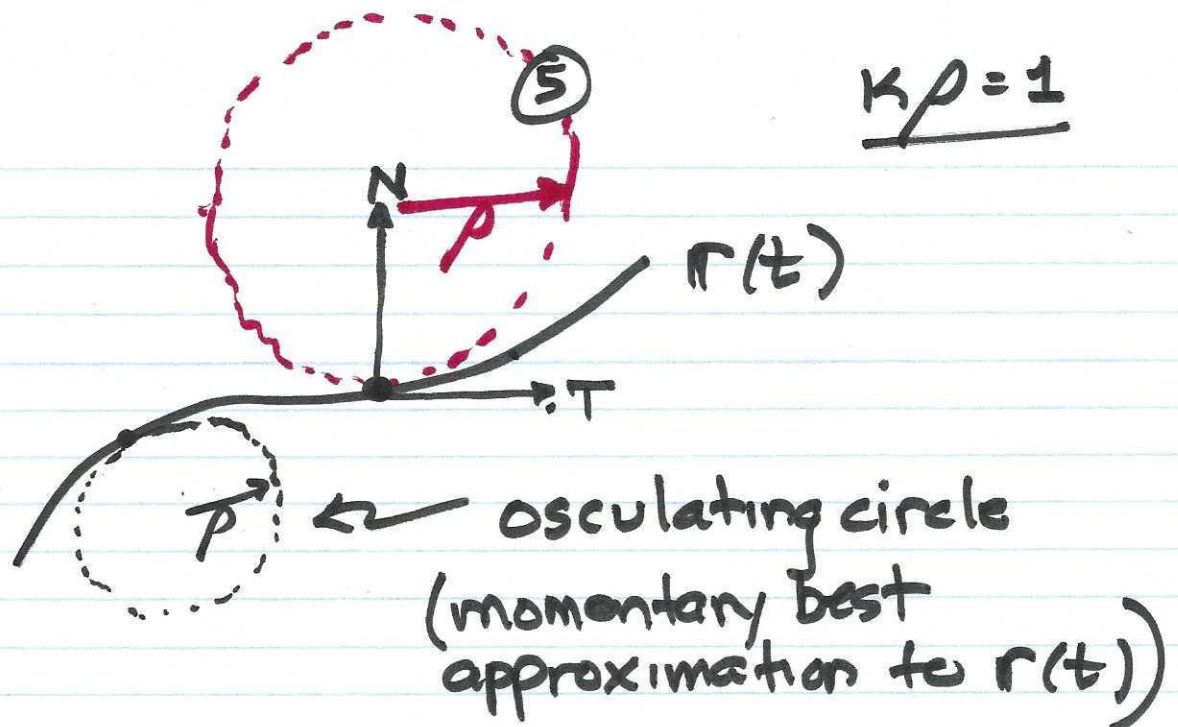 5
κρ=1
N
ρ
r(t)
T
ρ
osculating circle
(momentary best
approximation to r(t))